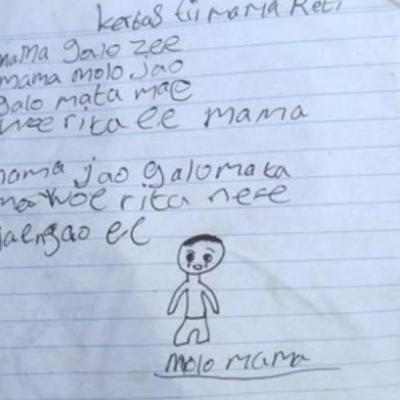 kertas tii mama Reti
mama galo zee
mama molo jao
galo mata mae
woe rita ee mama
mama jao galo mata
mae woe rita nese
jaengao ee
molo mama